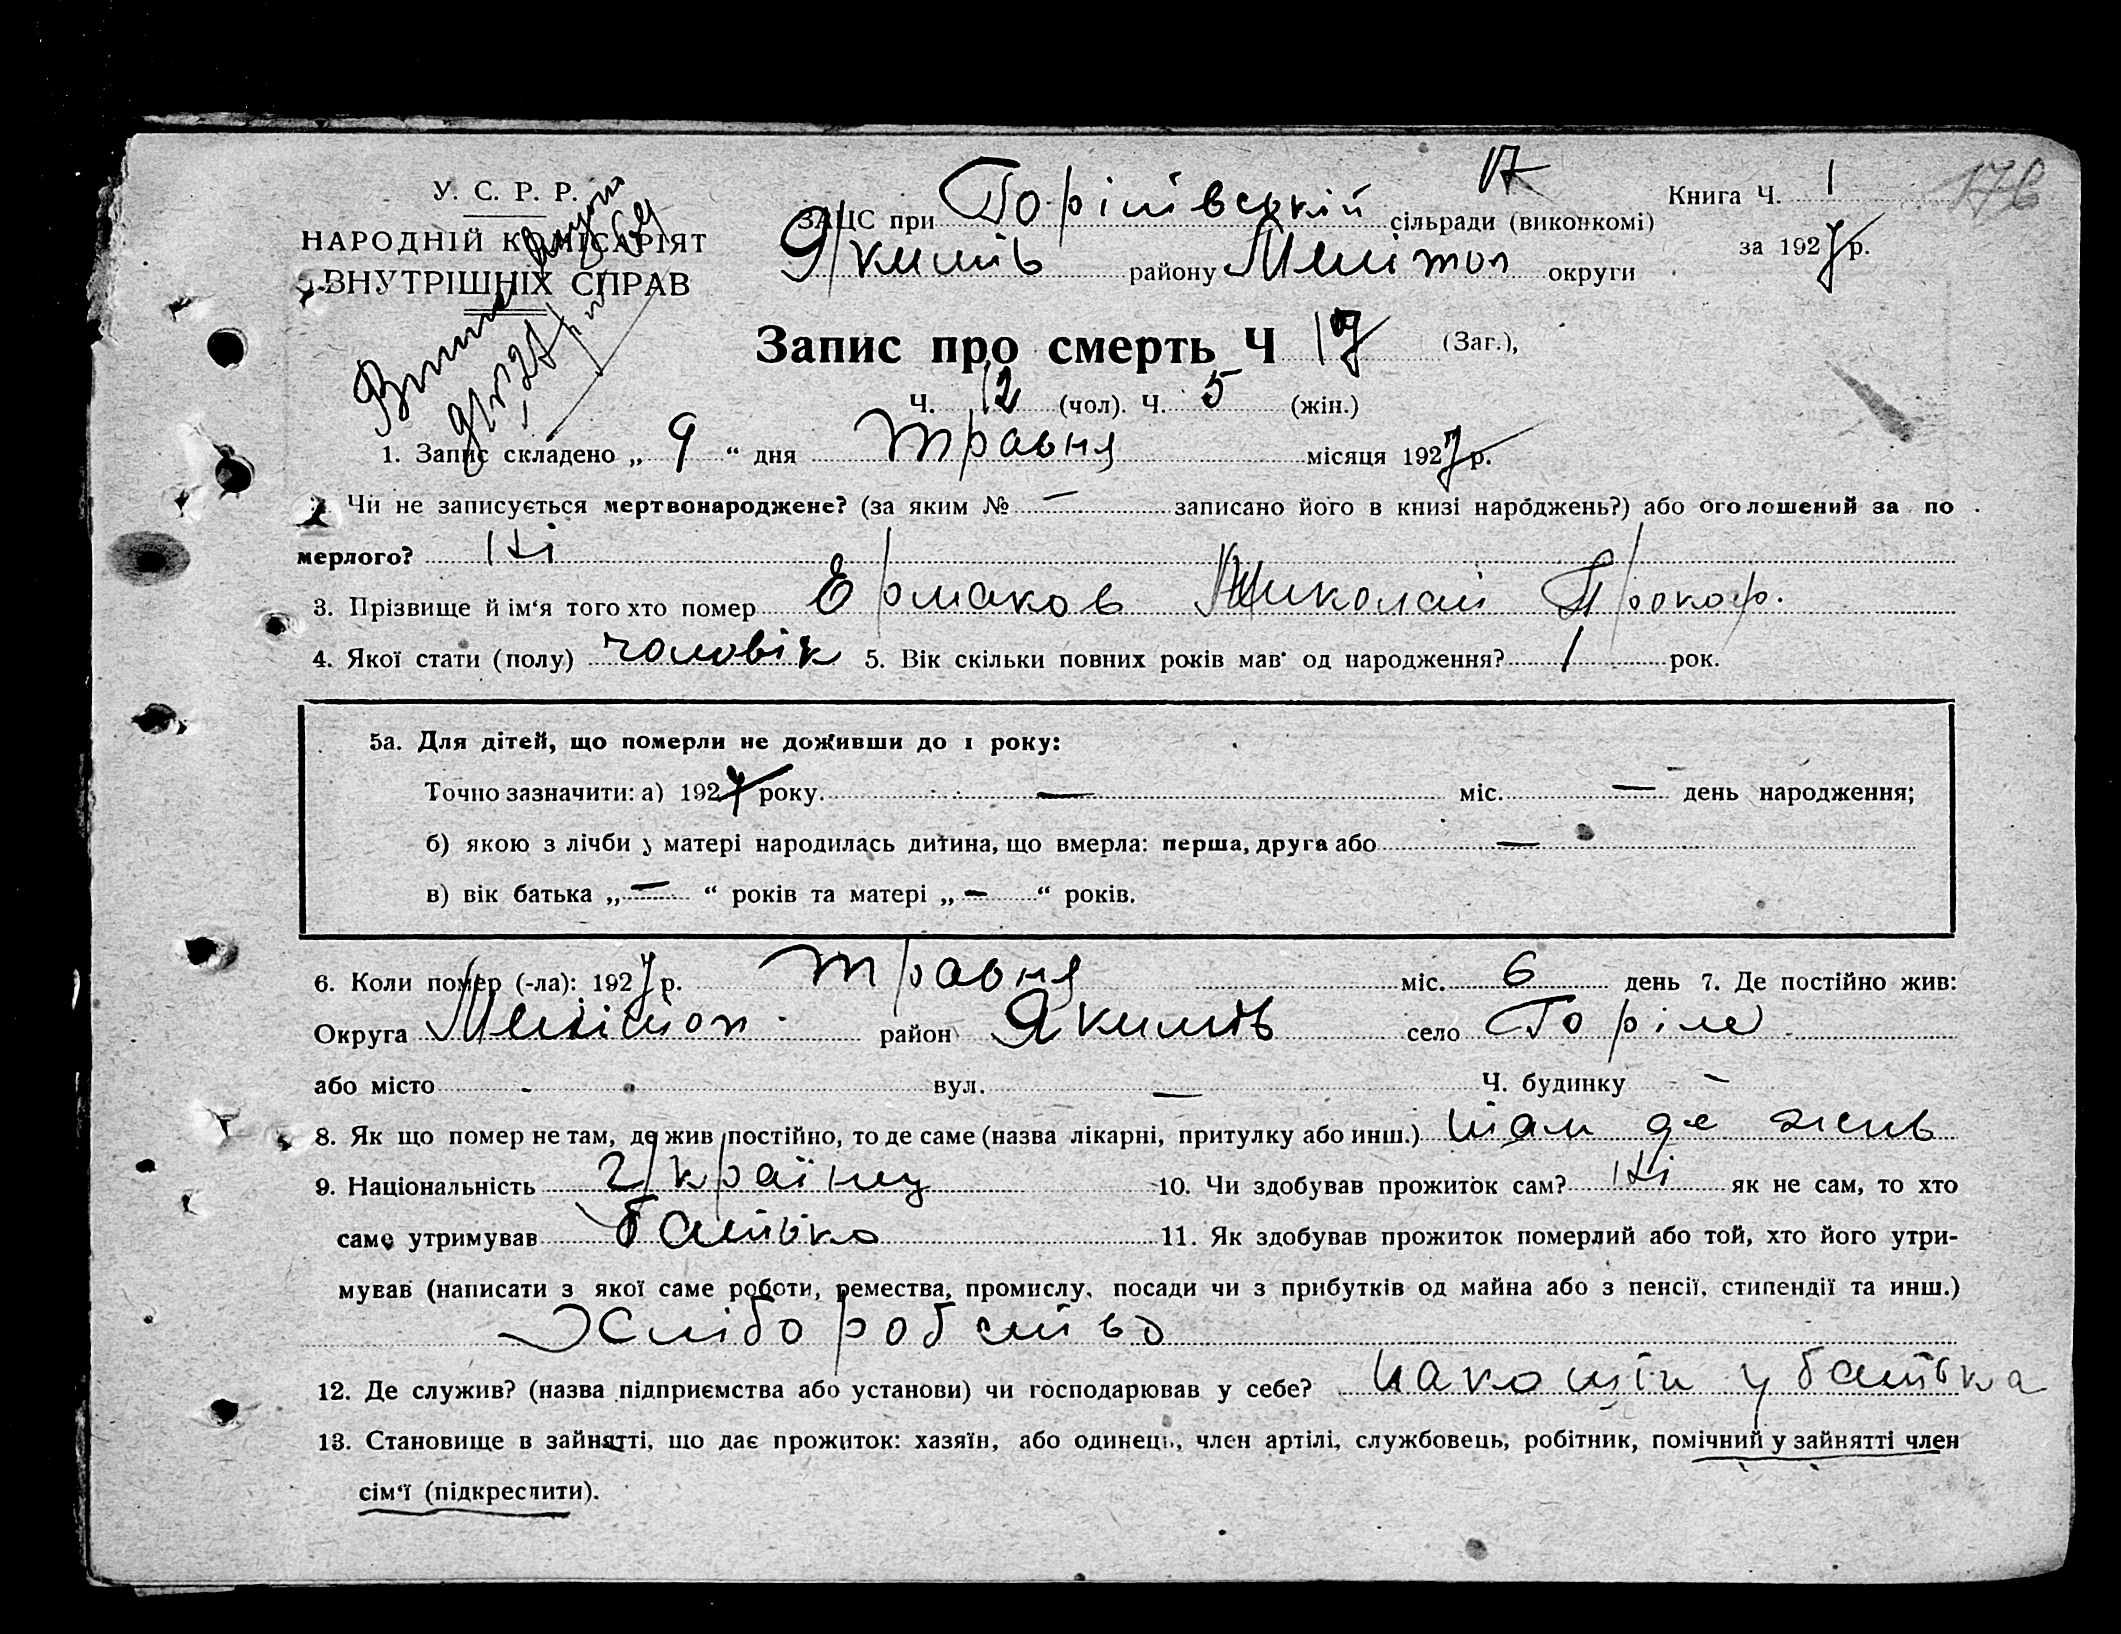 У. С. Р. Р.
НАРОДНІЙ КОМІСАРІЯТ
ВНУТРІШНІХ СПРАВ
17
176
Книга Ч. 1
за 1927 р.
ЗАЦС при Горілівській сільради (виконкомі)
Якимів району Мелітоп округи
Запис про смерть Ч 17 (Заг.),
Ч. 12 (чол). Ч. 5 (жін.)
1. Запис складено „ 9 “ дня травня місяця 1927 р.
2. Чи не записується мертвонароджене? (за яким № — записано його в книзі народжень?) або оголошений за по
мерлого? Ні
3. Прізвище й ім‘я того хто помер Ермаков Николай Прокоф.
4. Якої стати (полу) чоловік 5. Вік скільки повних років мав од народження? 1 рок.
5а. Для дітей, що померли не доживши до 1 року:
Точно зазначити: а) 1927 року. — міс. — день народження;
б) якою з лічби у матері народилась дитина, що вмерла: перша, друга або —
в) вік батька „ — “ років та матері „ — “ років.
6. Коли помер (-ла): 1927 р. травня міс. 6 день 7. Де постійно жив:
Округа Мелітоп район Якимів село Горіле
або місто - вул. — Ч. будинку —
8. Як що помер не там, де жив постійно, то де саме (назва лікарні, притулку або инш.) там де жив
9. Національність Україну 10. Чи здобував прожиток сам? Ні як не сам, то хто
саме утримував батько 11. Як здобував прожиток померлий або той, хто його утри-
мував (написати з якої саме роботи, ремества, промислу, посади чи з прибутків од майна або з пенсії, стипендії та инш.)
Хліборобство
12. Де служив? (назва підприємства або установи) чи господарював у себе? на кошти у батька
13. Становище в зайнятті, що дає прожиток: хазяїн, або одинець, член артілі, службовець, робітник, помічний у зайнятті член
сім‘ї (підкреслити).